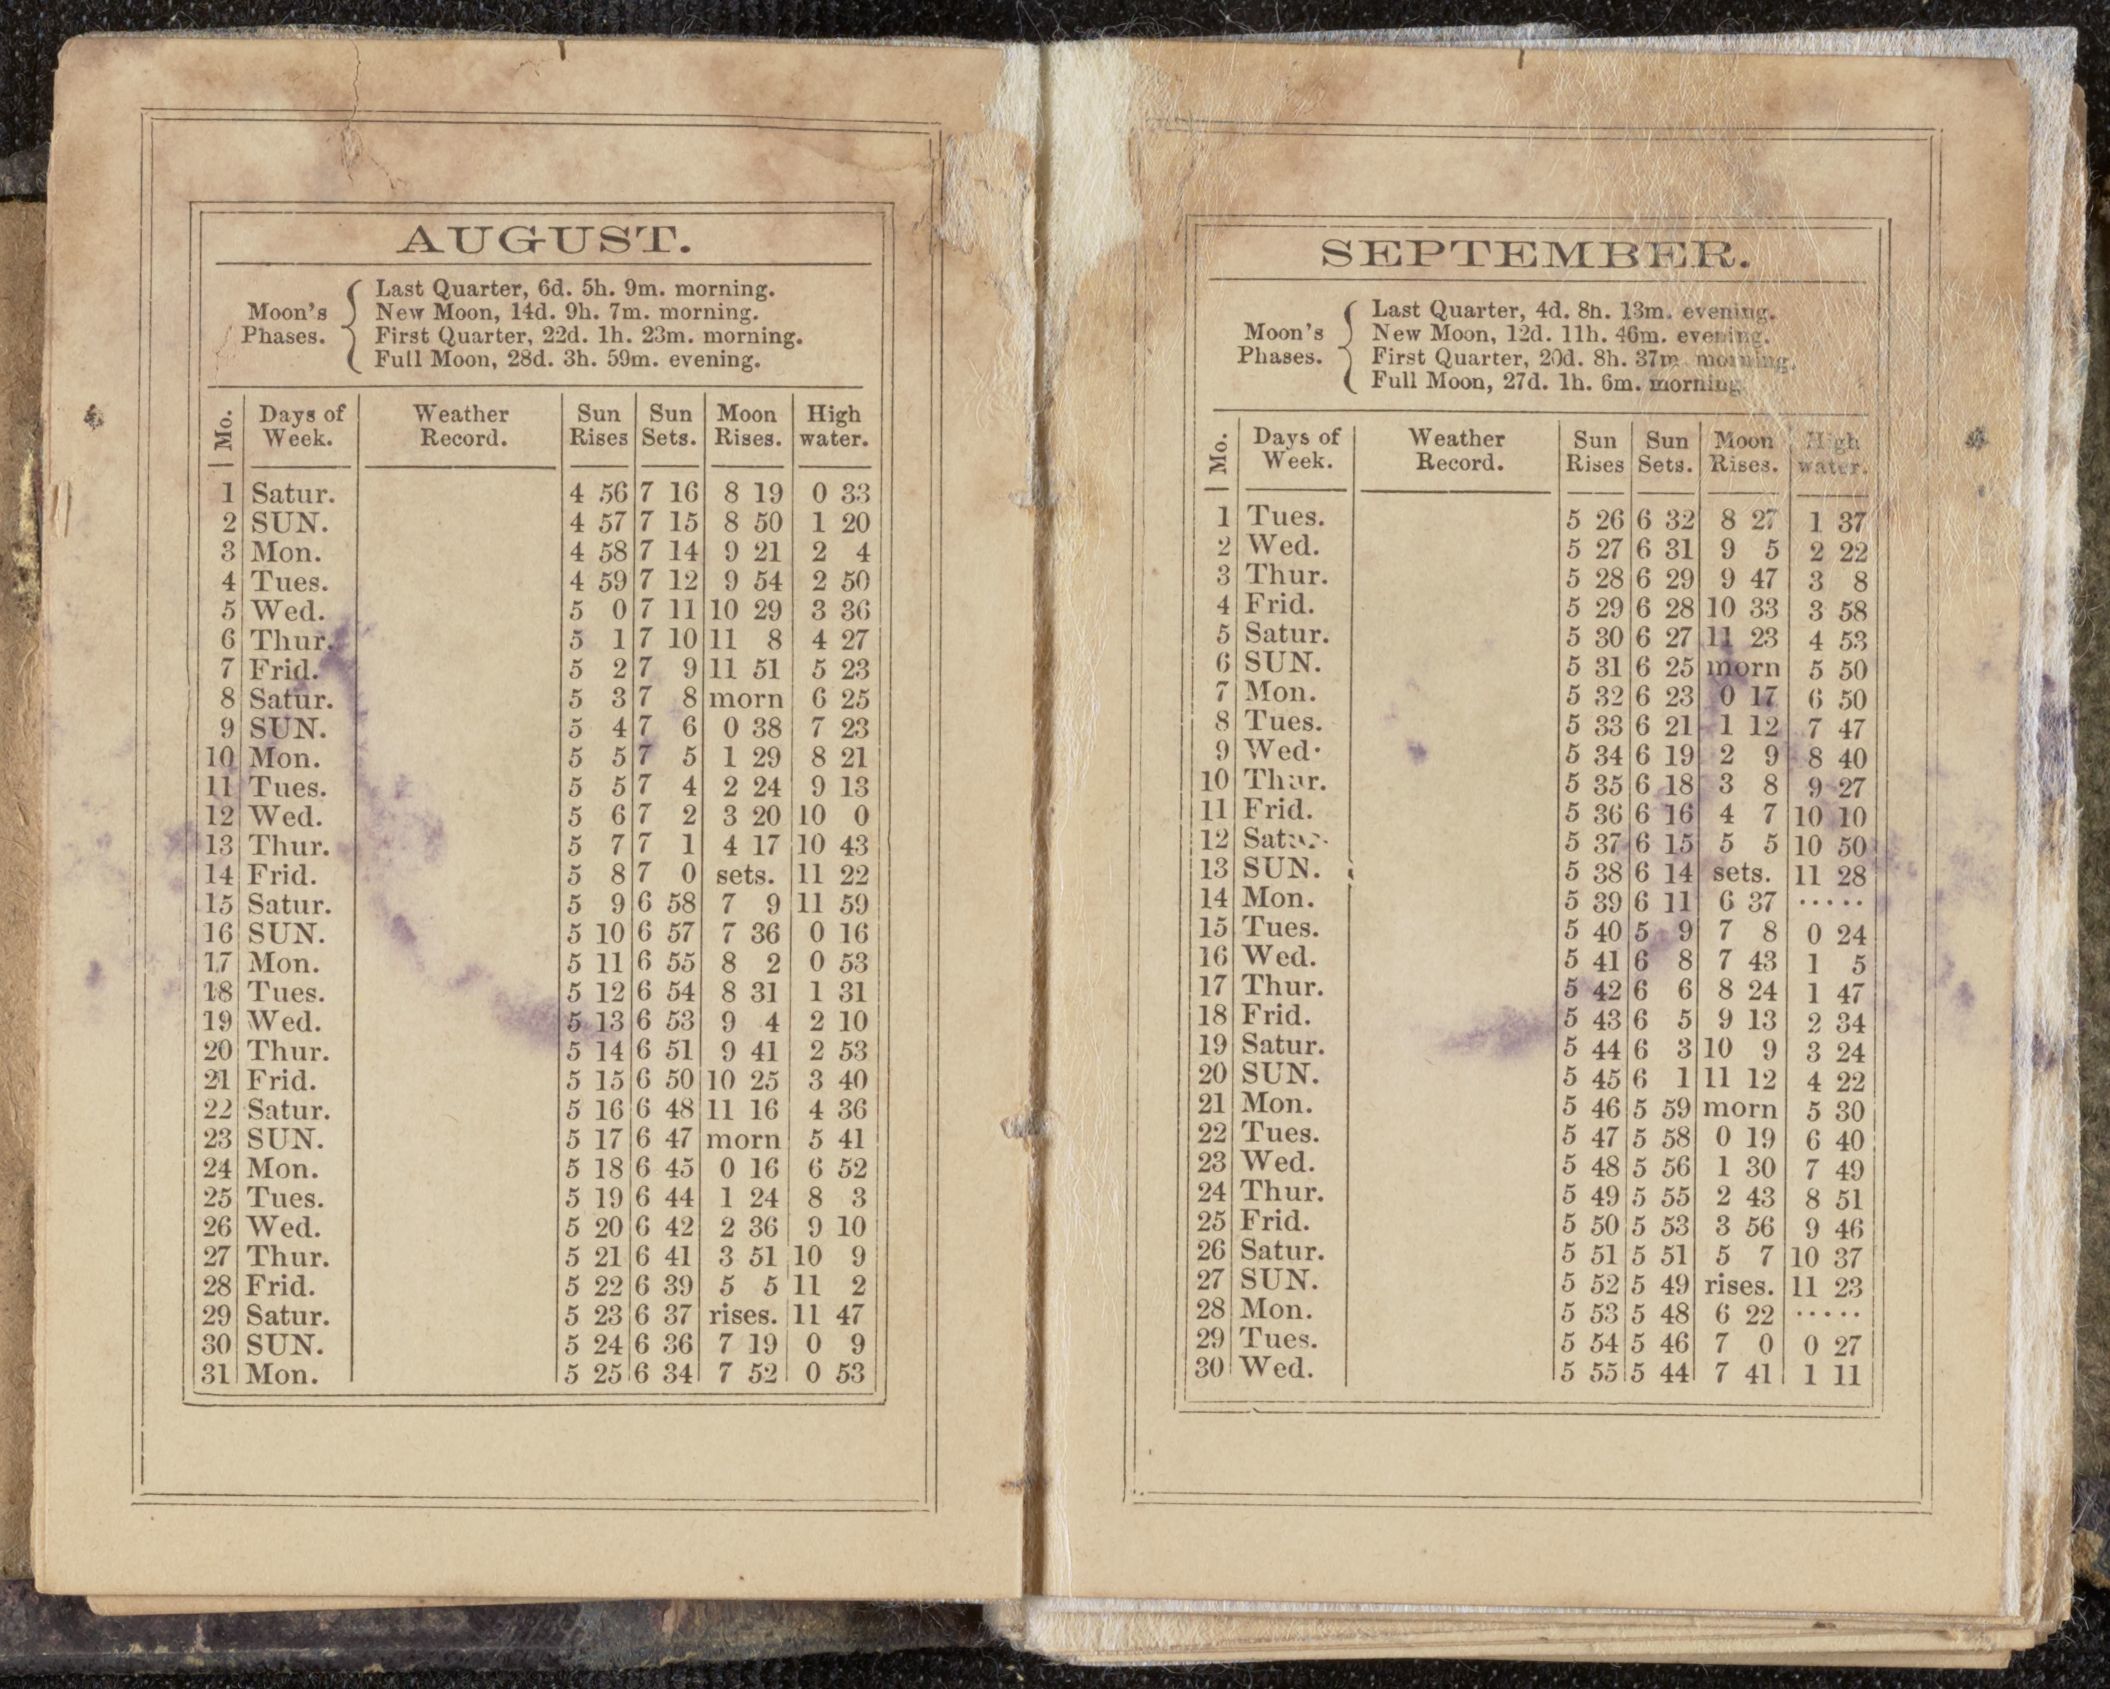 AUGUST.
Moon's Phases.
Last Quarter, 6d. 5h. 9m. morning.
New Moon, 14d. 9h. 7m. morning.
First Quarter, 22d. 1h. 23m. morning.
Full Moon, 28d. 3h. 59m. evening.
Mo. Days of Week. Weather Record. Sun Rises Sun Sets. Moon Rises. High water.
1 Satur. 4 56 7 16 8 19 0 33
2 SUN. 4 57 7 15 8 50 1 20
3 Mon. 4 58 7 14 9 21 2 4
4 Tues. 4 59 7 12 9 54 2 50
5 Wed. 5 0 7 11 10 29 3 36
6 Thur. 5 1 7 10 11 8 4 27
7 Frid. 5 2 7 9 11 51 5 23
8 Satur. 5 3 7 8 morn 6 25
9 SUN. 5 4 7 6 0 38 7 23
10 Mon. 5 5 7 5 1 29 8 21
11 Tues. 5 5 7 4 2 24 9 13
12 Wed. 5 6 7 2 3 20 10 0
13 Thur. 5 7 7 1 4 17 10 43
14 Frid. 5 8 7 0 sets. 11 22
15 Satur. 5 9 6 58 7 9 11 59
16 SUN. 5 10 6 57 7 36 0 16
17 Mon. 5 11 6 55 8 2 0 53
18 Tues. 5 12 6 54 8 31 1 31
19 Wed. 5 13 6 53 9 4 2 10
20 Thur. 5 14 6 51 9 41 2 53
21 Frid. 5 15 6 50 10 25 3 40
22 Satur. 5 16 6 48 11 16 4 36
23 SUN. 5 17 6 47 morn 5 41
24 Mon. 5 18 6 45 0 16 6 52
25 Tues. 5 19 6 44 1 24 8 3
26 Wed. 5 20 6 42 2 36 9 10
27 Thur. 5 21 6 41 3 51 10 9
28 Frid. 5 22 6 39 5 5 11 2
29 Satur. 5 23 6 37 rises. 11 47
30 SUN. 5 24 6 36 7 19 0 9
31 Mon. 5 25 6 34 7 52 0 53
SEPTEMBER.
Moon's Phases.
Last Quarter, 4d. 8h. 13m. evening.
New Moon, 12d. 11h. 46m. evening.
First Quarter, 20d. 8h. 37m morning.
Full Moon, 27d. 1h. 6m. morning
Mo. Days of Week. Weather Record. Sun Rises Sun Sets. Moon Rises. High water.
1 Tues. 5 26 6 32 8 27 1 37
2 Wed. 5 27 6 31 9 5 2 22
3 Thur. 5 28 6 29 9 47 3 8
4 Frid. 5 29 6 28 10 33 3 58
5 Satur. 5 30 6 27 11 23 4 53
6 SUN. 5 31 6 25 morn 5 50
7 Mon. 5 32 6 23 0 17 6 50
8 Tues. 5 33 6 21 1 12 7 47
9 Wed. 5 34 6 19 2 9 8 40
10 Thur. 5 35 6 18 3 8 9 27
11 Frid. 5 36 6 16 4 7 10 10
12 Satur. 5 37 6 15 5 5 10 50
13 SUN. 5 38 6 14 sets. 11 28
14 Mon. 5 39 6 11 6 37 .....
15 Tues. 5 40 5 9 7 8 0 24
16 Wed. 5 41 6 8 7 43 1 5
17 Thur. 5 42 6 6 8 24 1 47
18 Frid. 5 43 6 5 9 13 2 34
19 Satur. 5 44 6 3 10 9 3 24
20 SUN. 5 45 6 1 11 12 4 22
21 Mon. 5 46 5 59 morn 5 30
22 Tues. 5 47 5 58 0 19 6 40
23 Wed. 5 48 5 56 1 30 7 49
24 Thur. 5 49 5 55 2 43 8 51
25 Frid. 5 50 5 53 3 56 9 46
26 Satur. 5 51 5 51 5 7 10 37
27 SUN. 5 52 5 49 rises. 11 23
28 Mon. 5 53 5 48 6 22 .....
29 Tues. 5 54 5 46 7 0 0 27
30 Wed. 5 55 5 44 7 41 1 11